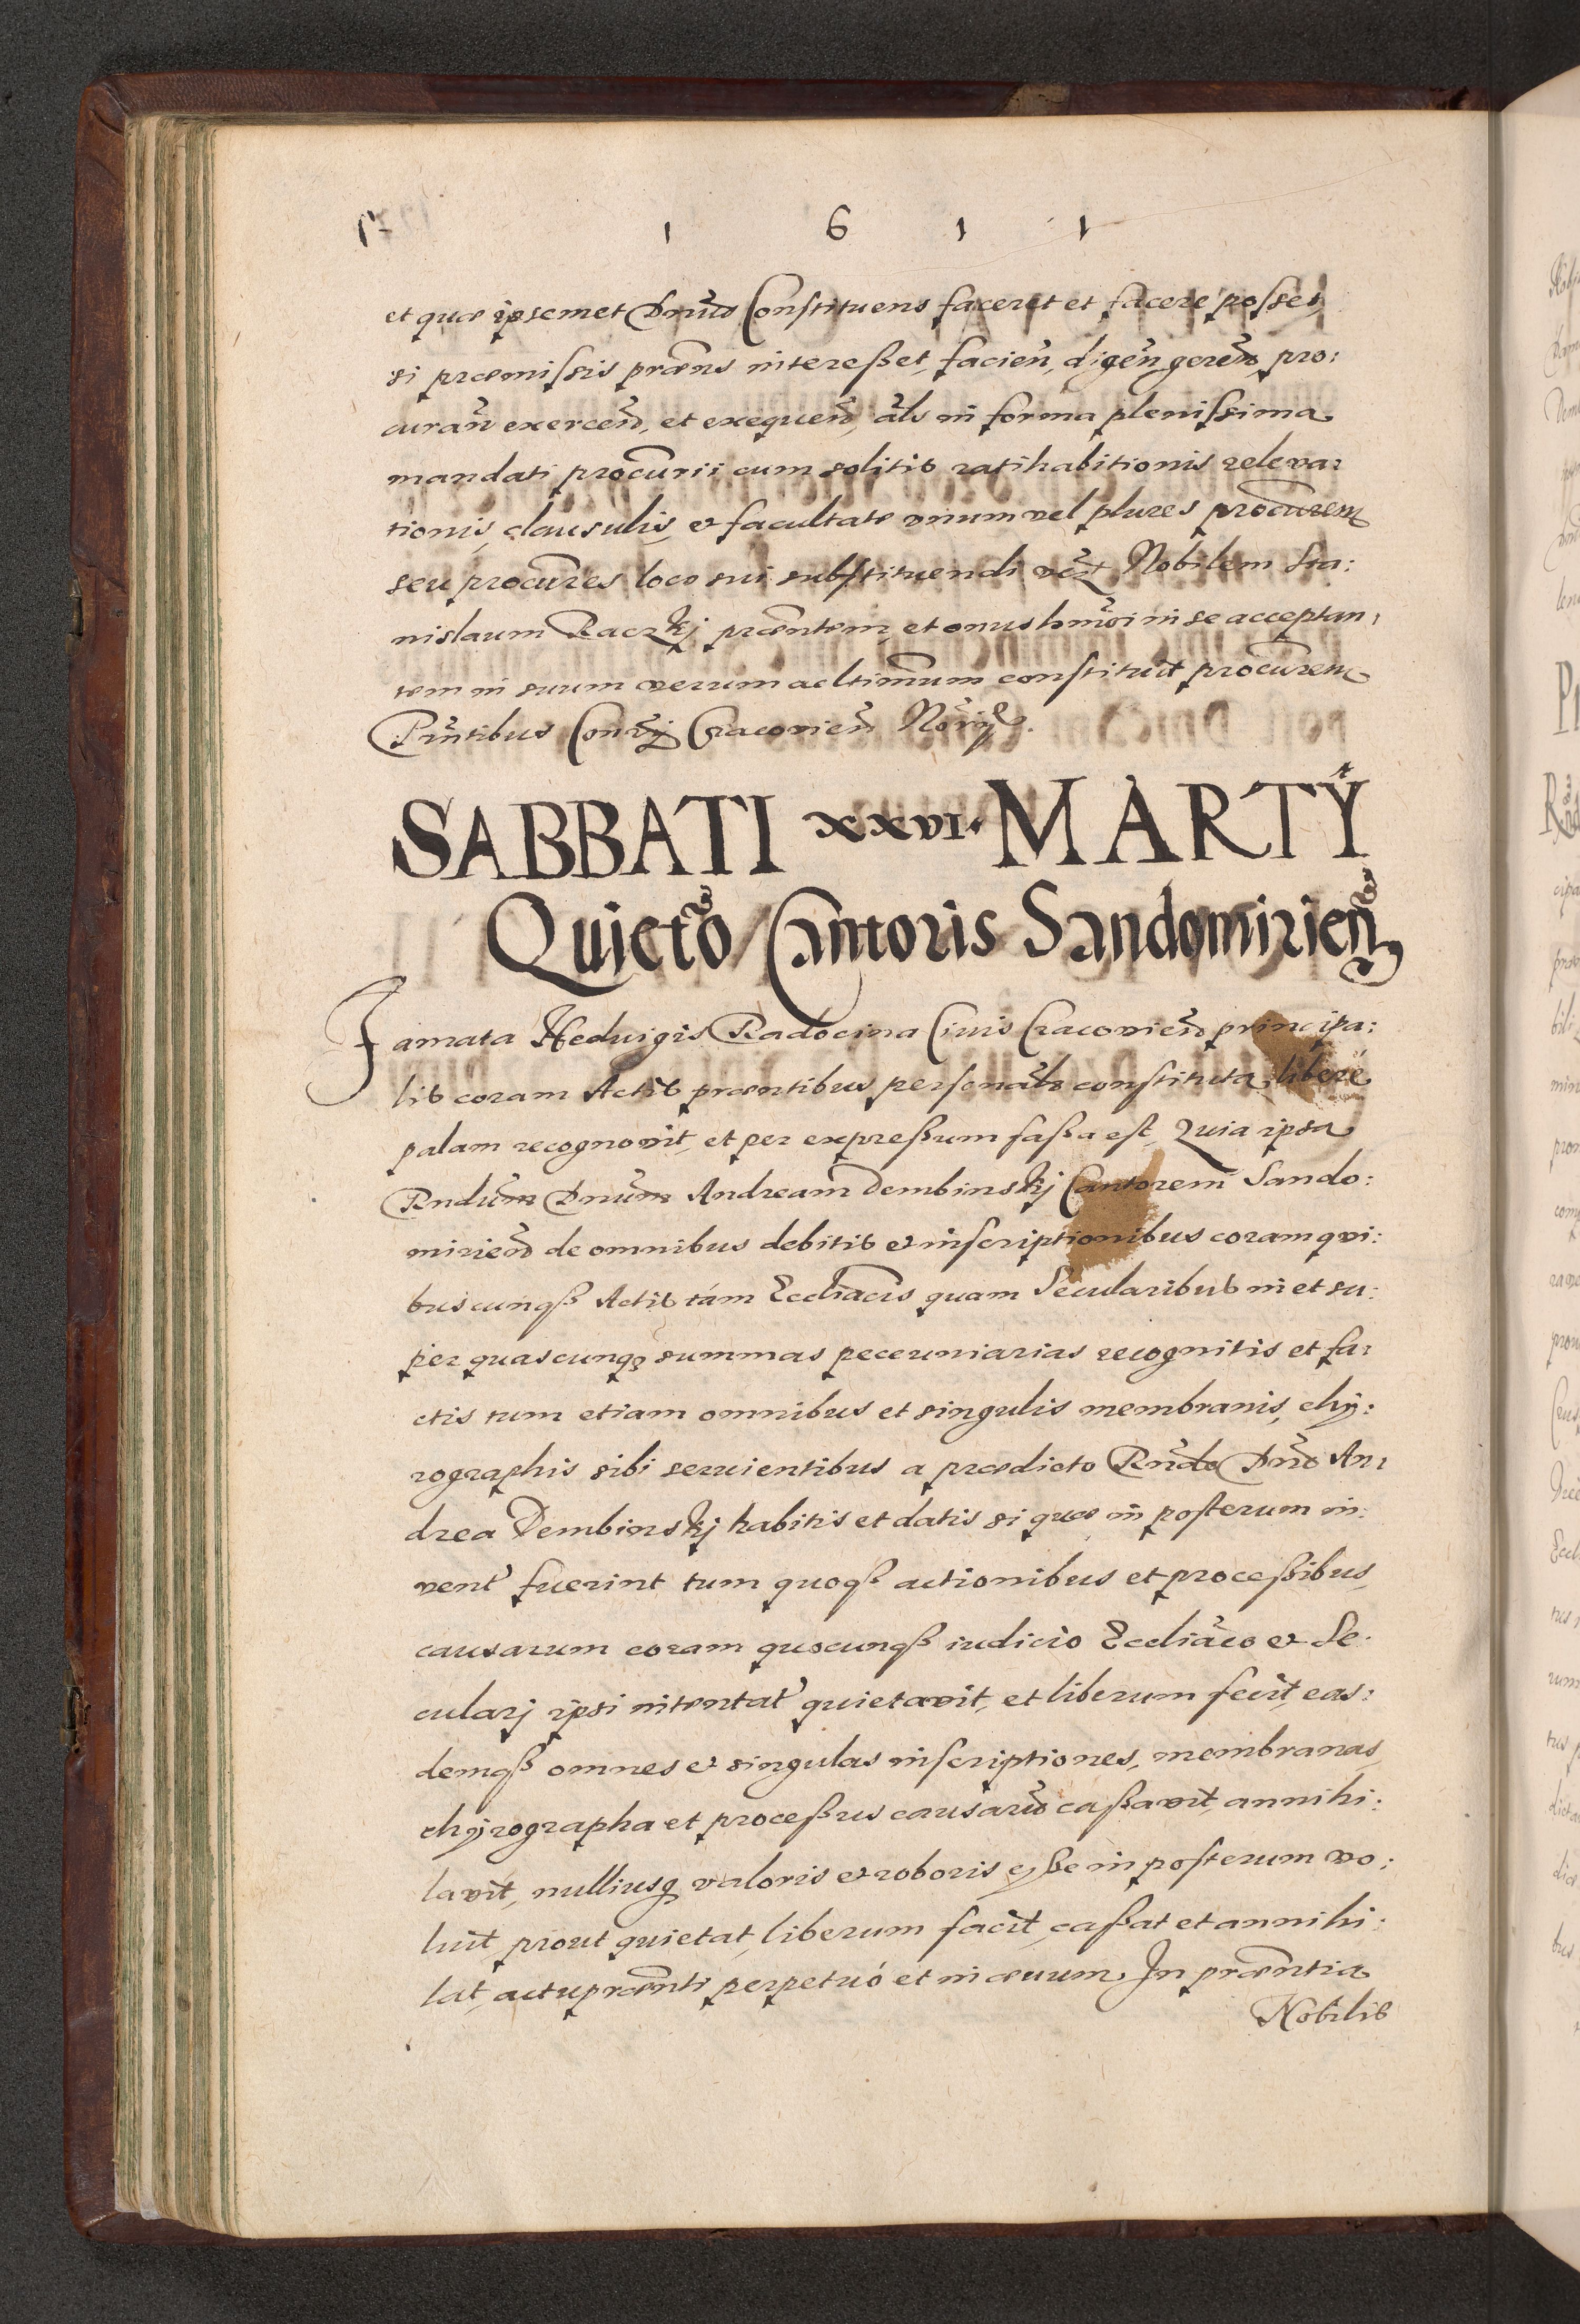 1 6 1 1
et quæ ipsemet Dnus Constituens faceret et facere posset,
si præmissis præns interesset, facien, digen, geren, pro:
curan exercen, et exequen, als in forma plenissima
mandati procurii cum solitis ratihabitionis releva:
tionis, clausulis, et facultate unum vel plures procurem
seu procures loco sui substituendi vczt Nobilem Sta:
nislaum Raczkj præntem, et onus hmoi in se acceptan:
tem in suum verum ac ltimum constituit procurem
Prntibus Conrij Cracovien Norijs.
SABBATI xxvi. MARTY
Quietõ Cantoris Sandomirien
Famata Hedvigis Radocina Civis Cracovien principa:
lis coram Actis præntibus personals constituta, libere
palam recognovit, et per expressum fassa est, Quia ipsa
Rndum Dnum Andream Dembinskj Cantorem Sando:
mirien de omnibus debitis et inscriptionibus coram qui:
buscunqß Actis tám Eccliacis quam Secularibus in et su:
per quascunq summas pecuniarias recognitis et fa:
ctis tum etiam omnibus et singulis membranis, chy:
rographis sibi servientibus a prædicto Rndo Dno An:
drea Dembinskj habitis et datis si quæ in posterum in:
vent fuerint tum quoqß actionibus et processibus
causarum coram quocunqß iudicio Eccliaco et Se:
cularj ipsi intentat quietavit, et liberum fecit, eas:
demqß omnes et singulas inscriptiones, membranas,
chyrographa et processus causarũ cassavit, annihi:
lavit, nulliusq valoris et roboris esse in posterum vo:
luit, prout quietat, liberum facit, cassat et annihi:
lat, actu prænti perpetuó et in ævum. In præntia
Nobilis